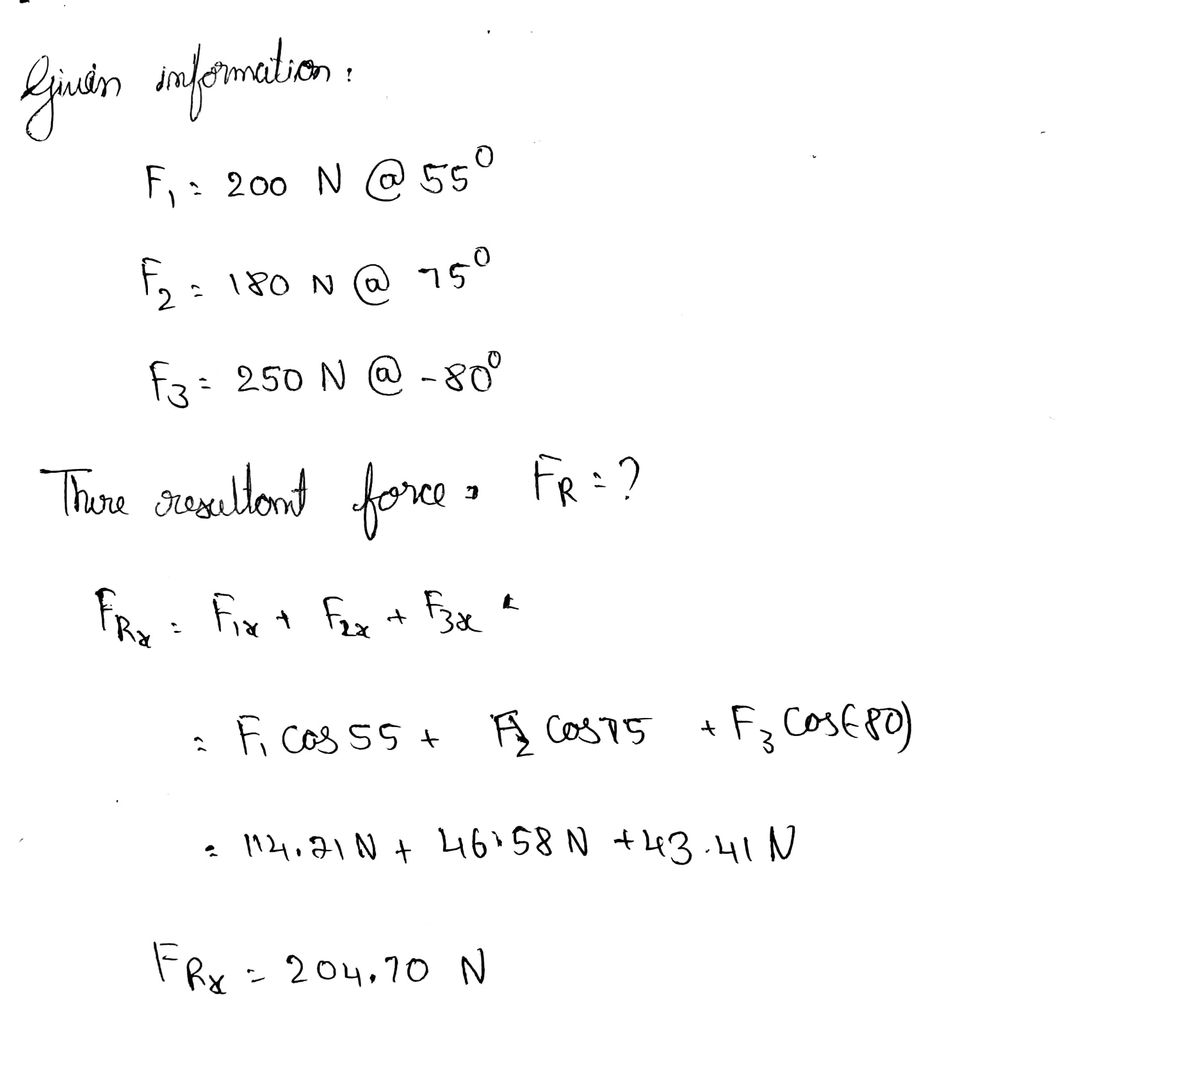 Given information :
F₁ = 200 N @ 55⁰
F₂ = 180 N @ 75⁰
F₃ = 250 N @ -80⁰
There resultant force, F_R = ?
F_Rx = F₁ₓ + F₂ₓ + F₃ₓ
= F₁ Cos 55 + F₂ Cos 75 + F₃ Cos(-80)
= 114.71 N + 46.58 N + 43.41 N
F_Rx = 204.70 N